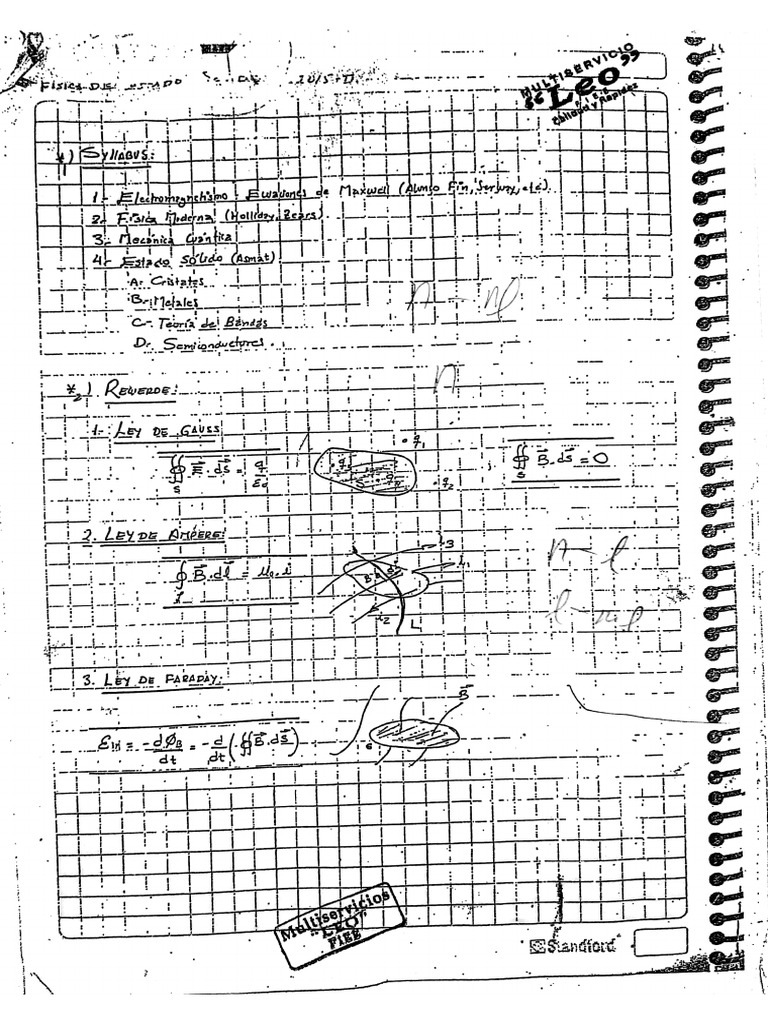 FISICA DE ESTADO
MULTISERVICIO
"Leo"
Calidad y Rapidez
*1) SYLLABUS:
1.- Electromagnetismo - Ecuaciones de Maxwell (Alonso Fin, Serway, etc).
2.- Física Moderna (Holliday, Zears)
3.- Mecánica Cuántica
4.- Estado Sólido (Asmat)
A.- Cristales
B.- Metales
C.- Teoría de Bandas
D.- Semiconductores.
n - nl
n
*2) RECUERDE:
1.- LEY DE GAUSS
∯ₛ E⃗.ds⃗ = q/ε₀
q₁
q₂
∯ₛ B⃗.ds⃗ = 0
2. LEY DE AMPERE:
∮ B⃗.dl⃗ = μ₀.i
i₃
i₁
i₂
L
n - l
3. LEY DE FARADAY:
B⃗
εin = -dØB/dt = -d/dt (∯ B⃗.ds⃗)
Multiservicios
"LEO"
FIEE
Standford